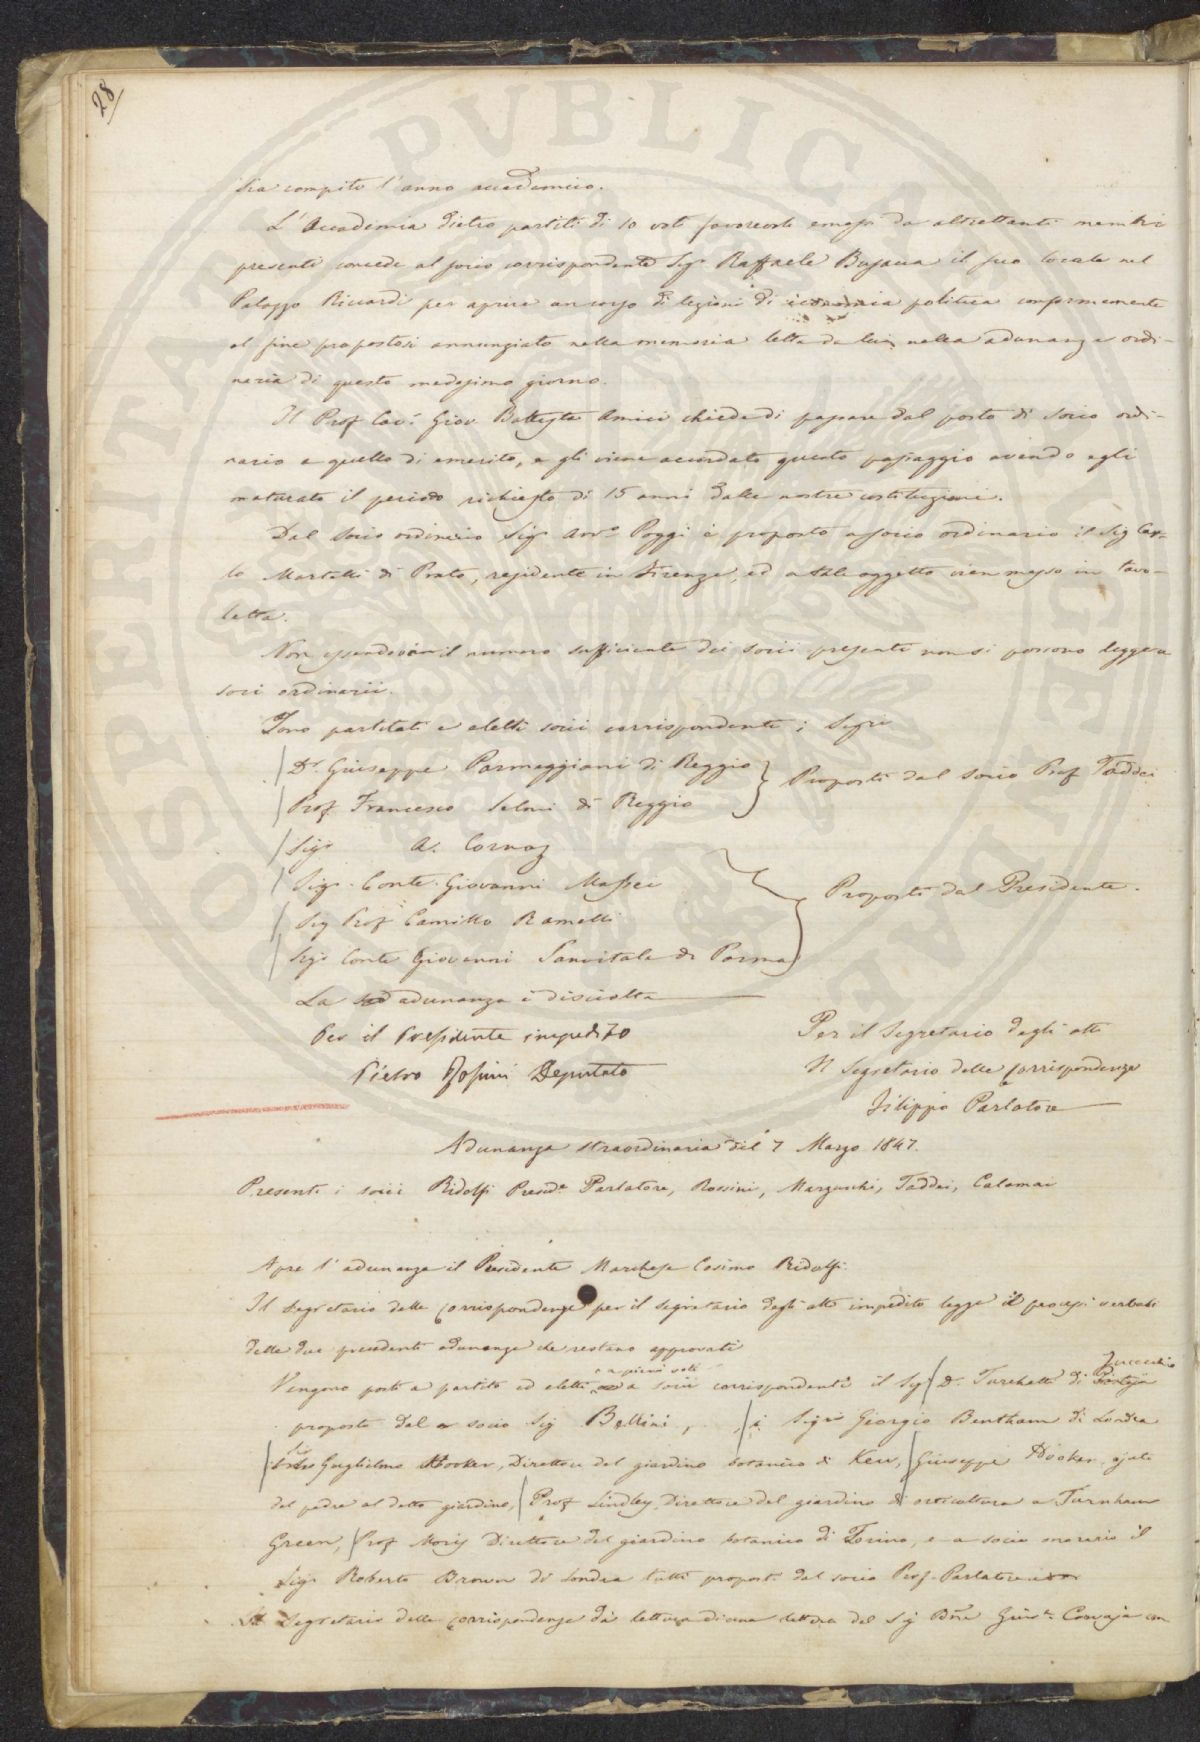 28
sia compito l'anno accademico.
L'Accademia dietro partiti di 10 voti favorevoli emessi da altrettanti membri
presenti concede al socio corrispondente Sigr Raffaele Busacca il suo locale nel
Palazzo Riccardi per aprire un corso di lezioni di economia politica conformemente
al fine propostosi annunziato nella memoria letta da lui nella adunanza ordi-
naria di questo medesimo giorno.
Il Prof Cav. Giov. Battista Amici chiede di passare dal posto di socio ordi-
nario a quello di emerito, e gli viene accordato questo passaggio avendo egli
maturato il periodo richiesto di 15 anni dalle nostre costituzioni.
Dal socio ordinario Sigr Avvo Poggi è proposto a socio ordinario il Sig Car-
lo Martelli di Prato, residente in Firenze, ed a tale oggetto vien messo in tavo-
letta.
Non essendovi il numero sufficiente dei socii presenti non si possono leggere
soci ordinarii.
Sono partitati e eletti socii corrispondenti i Sigri
Dr. Giuseppe Parmeggiani di Reggio
Prof. Francesco Selmi di Reggio
Proposti dal socio Prof Taddei
Sigr A. Cornaz
Sigr. Conte Giovanni Massei
Sig Prof Camillo Ramelli
Sigr Conte Giovanni Sanvitale di Parma
Proposti dal Presidente.
La adunanza è disciolta
Per il Presidente impedito
Pietro Rossini Deputato
Per il Segretario degli atti
Il Segretario delle corrispondenze
Filippo Parlatore
Adunanza straordinaria del 7 Marzo 1847.
Presenti i socii Ridolfi Preside Parlatore, Rossini, Marzucchi, Taddei, Calamai
Apre l'adunanza il Presidente Marchese Cosimo Ridolfi.
Il Segretario delle corrispondenze per il segretario degli atti impedito legge i processi verbali
delle due precedenti adunanze che restano approvati
Vengono posti a partito ed eletti a pieni voti a socii corrispondenti il Sig Dr. Turchetti di Fucecchio
proposto dal socio Sig Bellini, i Sigri Giorgio Bentham di Londra
Guglielmo Hooker, Direttore del giardino botanico di Kew, Giuseppe Hooker, ajuto
del padre al detto giardino, Prof Lindley Direttore del giardino di orticoltura a Turnham
Green, Prof Moris Direttore del giardino botanico di Torino, e a socio onorario il
Sigr Roberto Brown di Londra tutti proposti dal socio Prof. Parlatore
Il Segretario delle corrispondenze dà lettura di una lettera del Sig Bne Gius.e Corvaja con